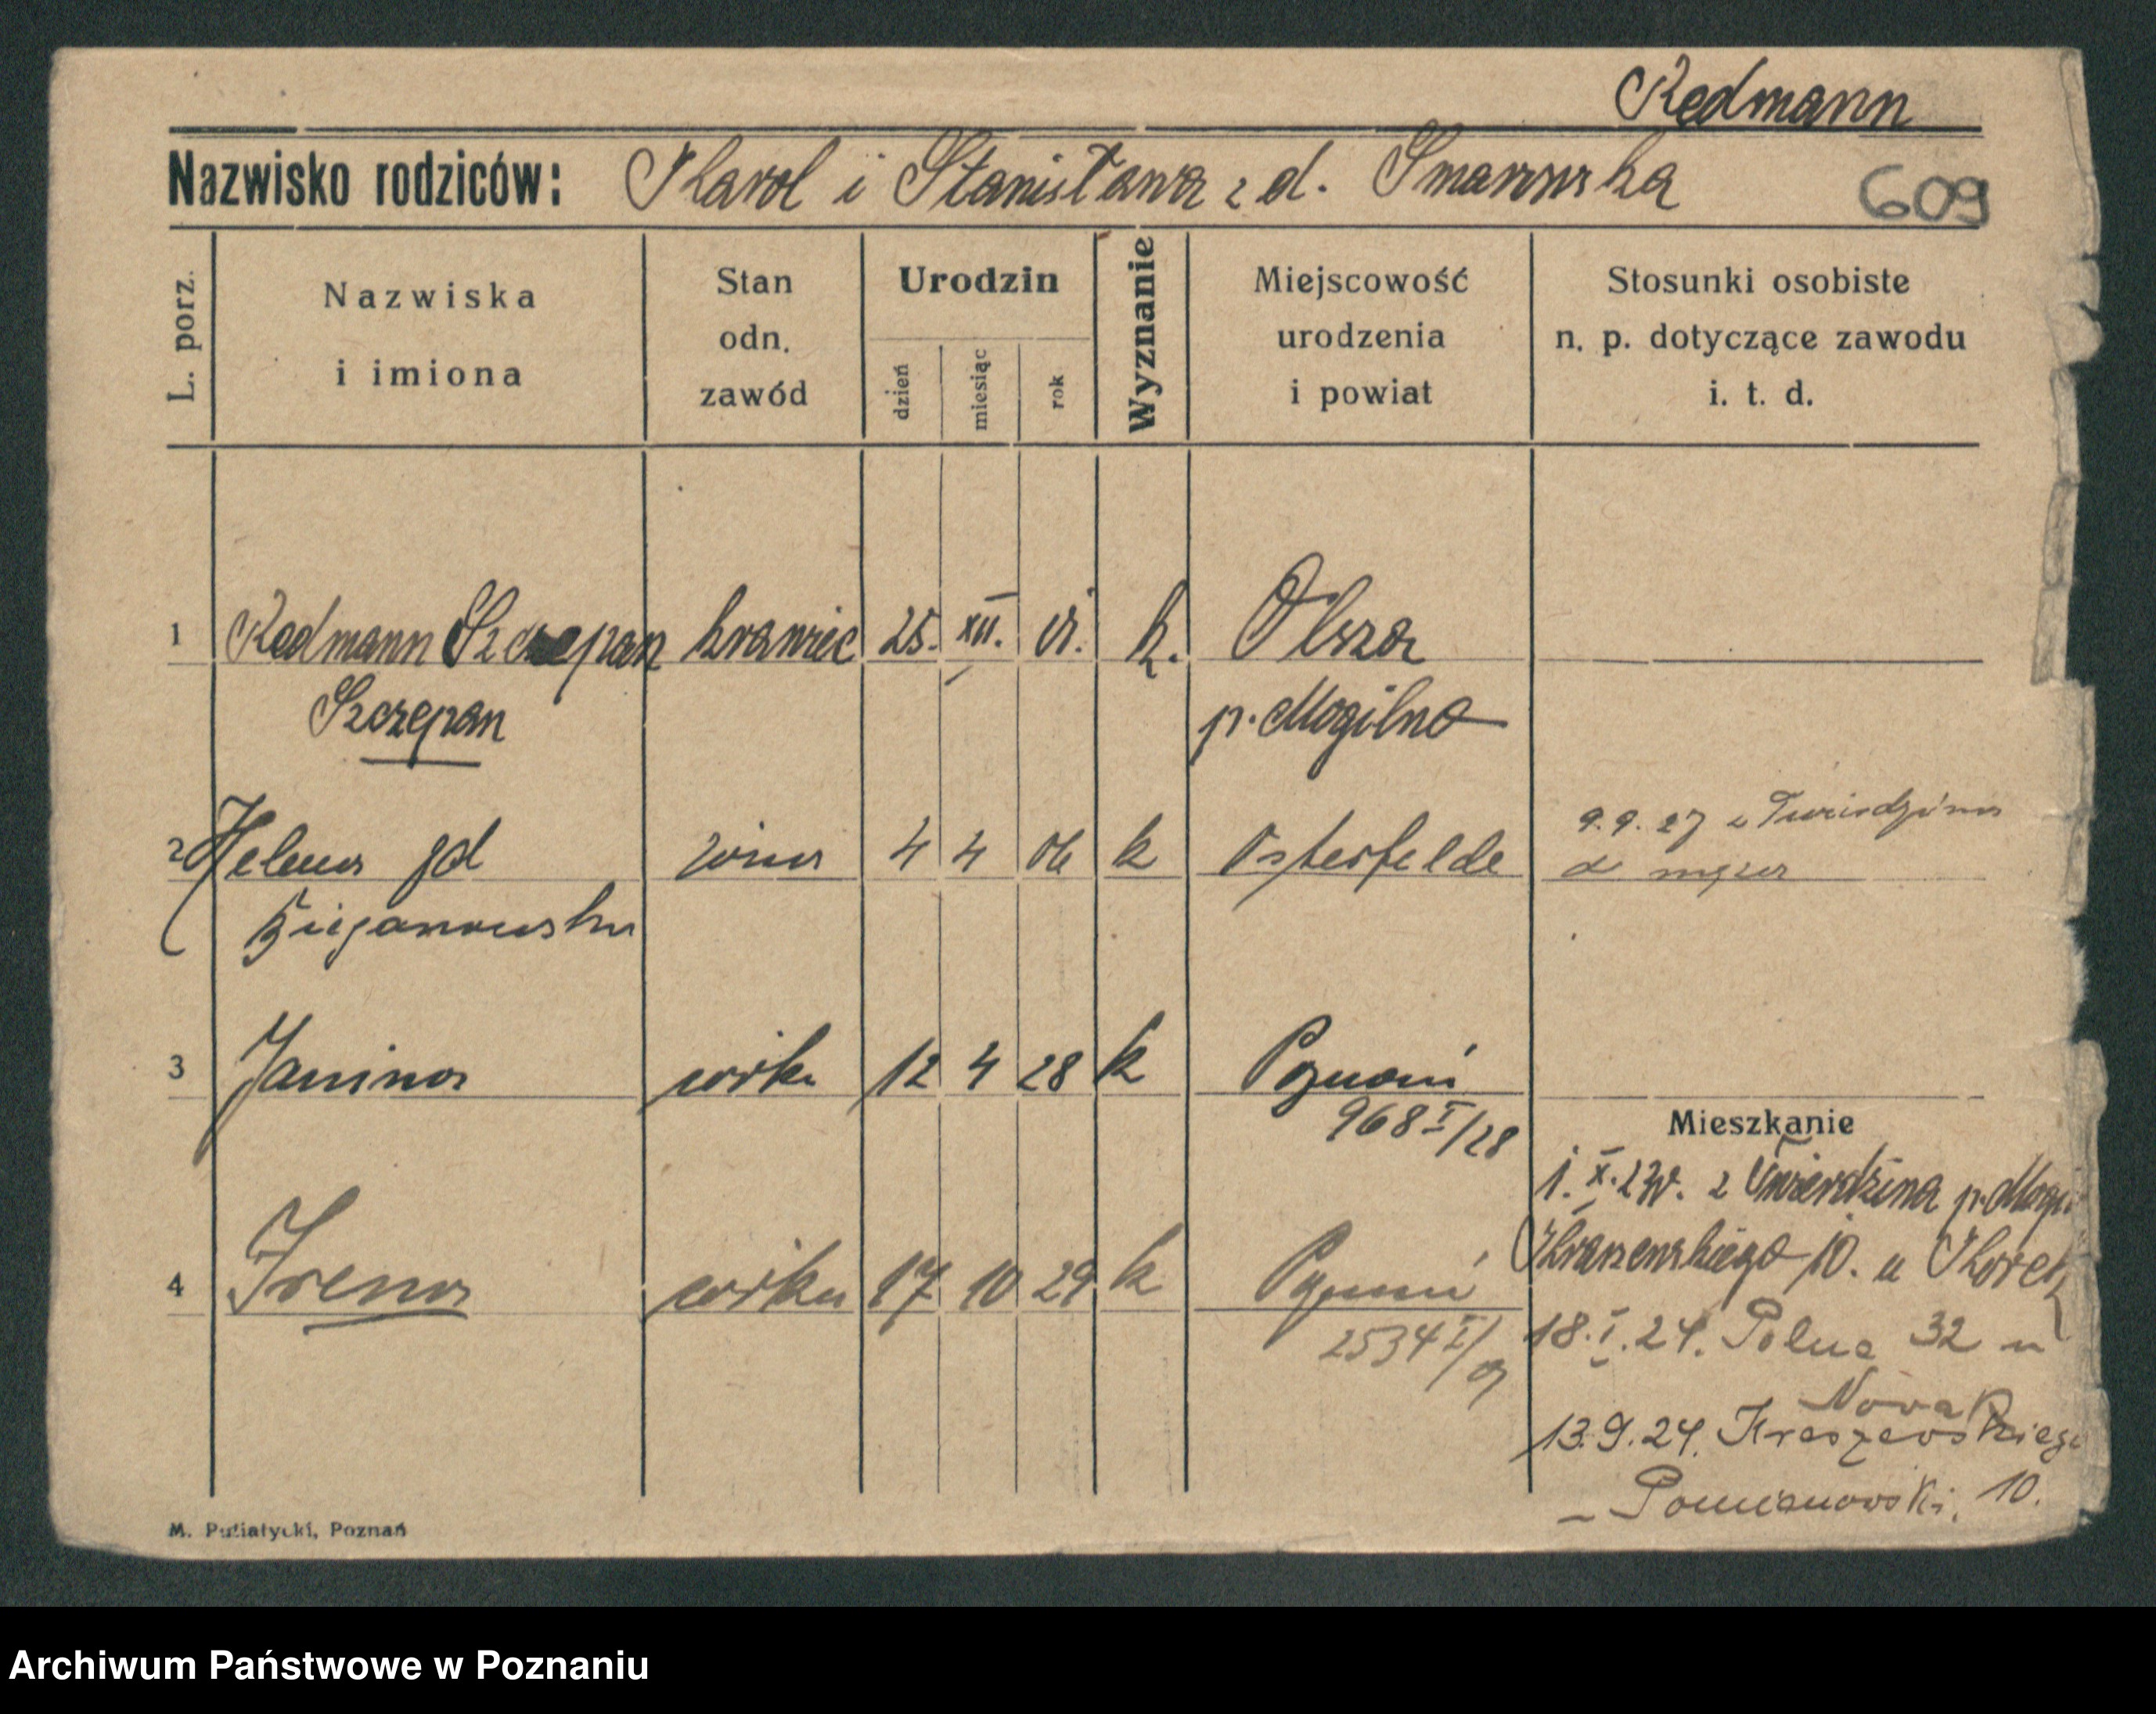 Redmann
Nazwisko rodziców: Karol i Stanisława z d. Smarurska
609
L. porz.
Nazwiska
i imiona
Stan
odn.
zawód
Urodzin
dzień
miesiąc
rok
Wyznanie
Miejscowość
urodzenia
i powiat
Stosunki osobiste
n. p. dotyczące zawodu
i. t. d.
1 Redmann Szczepan krawiec 25. XII. 01. k. Olsza
Szczepan p. Mogilno
9.9.27 z Twierdzina
2 Helena zd żona 4 4 06 k Osterfelde d męża
Bieganowska
3 Janina córka 12 4 28 k Poznań
968 I/28
Mieszkanie
1. X. 23r. z Twierdzina p. Mogi
Kraszewskiego 10. u
4 Irena córka 17 10 29 k Poznań
2534 I/29
18. I. 24. Polna 32 u
Nowak
13.9.24. Kraszewskiego
– Pomianowski, 10.
M. Putiatycki, Poznań
Archiwum Państwowe w Poznaniu